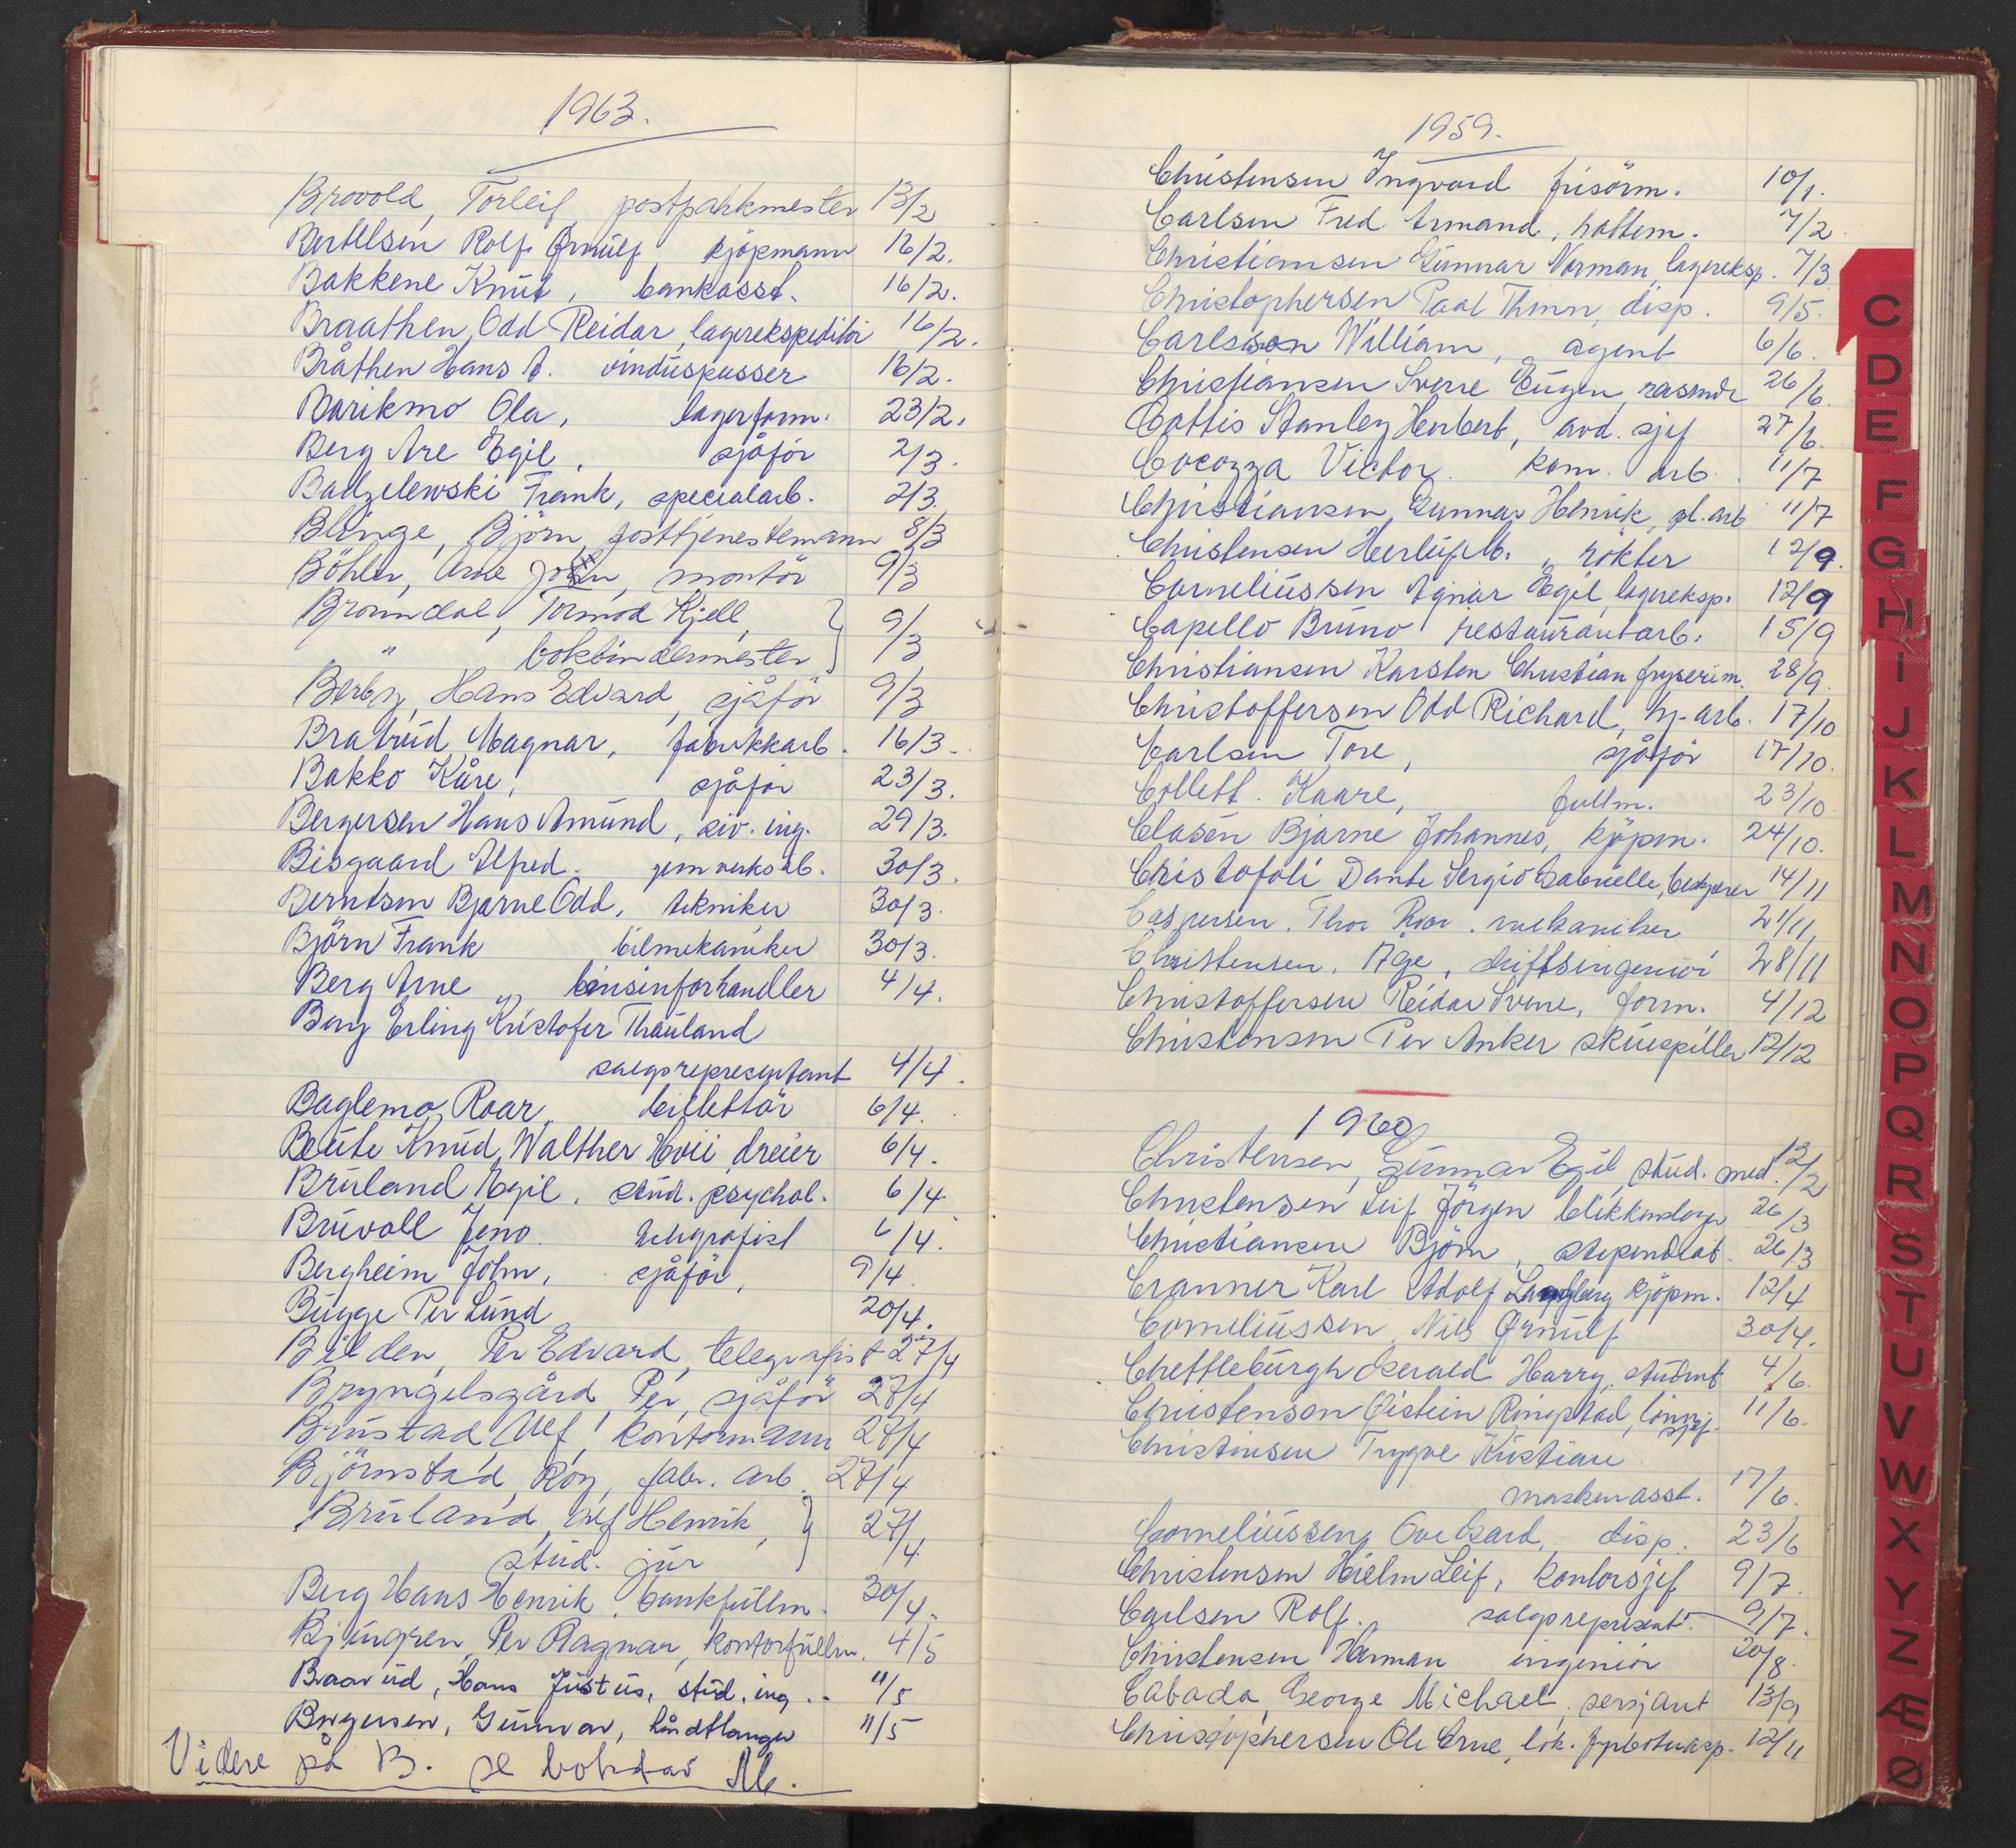 1963.
Brovold, Torleif, postpakkmester 13/2
Bertelsen Rolf Ørnulf kjøpmann 16/2.
Bakkene Knut, bankasst. 16/2.
Braathen, Odd Reidar, lagerekspeditör 16/2.
Bråthen Hans A. vinduspusser 16/2.
Barikmo Ola, lagerform. 23/2.
Berg Are Egil, sjåför 2/3.
Badzelewski Frank, specialarb. 2/3.
Blinge, Björn, posttjenestemann 8/3
Böhler, Arne John, montör 9/3
Bronndal, Tormod Kjell, } 9/3
" bokbindermester
Berby, Hans Edvard, sjåför 9/3
Bratrud Magnar, fabrikkarb. 16/3.
Bakko Kåre, sjåför 23/3.
Bergersen Hans Amund, siv. ing. 29/3.
Bisgaard Alfred. jernverksarb. 30/3.
Berntsen Bjarne Odd, tekniker 30/3.
Björn Frank bilmekaniker 30/3.
Berg Arne bensinforhandler 4/4.
Berg Erling Kristofer Thauland
salgsrepresentant 4/4.
Baglemo, Roar, billettör 6/4.
Beute Knud, Walther Hvii dreier 6/4.
Bruland Egil. stud. psychol. 6/4
Bruvoll Jeno. telegrafist 6/4.
Bergheim John, sjåför, 9/4.
Bugge Per Lund 20/4.
Bilden, Per Edvard, telegrafist 27/4
Bryngelsgård, Per, sjåför 27/4
Brustad, Ulf, kontormann 27/4
Björnstad, Roy, fabr. arb. 27/4
Bruland, Alf Henrik, } 27/4
stud. jur
Berg Hans Henrik, bankfullm. 30/4.
Bjungren, Per Ragnar, kontorfullm. 4/5
Baarud, Hans Justus, stud. ing.. 11/5
Borgersen, Gunnar, håndtlanger 11/5
Videre på B. se bokstav M.
1959.
Christensen Ingvard frisörm. 10/1.
Carlsen Fred Armand, hattem. 7/2
Christiansen Gunnar Norman, lagereksp. 7/3
Christophersen Paal Thmn, disp. 9/5.
Carlsson William, agent 6/6.
Christiansen Sverre Eugen, reisende 26/6.
Cottis Stanley Herbert, avd. sjef 27/6.
Cocozza Victor. kom. arb. 11/7
Christiansen, Gunnar Henrik, pl. arb 11/7
Christensen Herluf M. „ rökter 12/9.
Corneliussen Agnar Egil, lagereksp. 12/9
Capello Bruno restaurantarb. 15/9
Christiansen Karsten Christian fryserim. 28/9.
Christoffersen Odd Richard, hj-arb. 17/10
Carlsen Tore, sjåför 17/10.
Collett. Kaare, fullm. 23/10.
Clasén Bjarne Johannes, kjöpm. 24/10.
Christofoli Dante Sergio Gabrielle, 14/11
Caspersen, Thor Roar. mekaniker 21/11
Christensen, Age, driftsingeniör 28/11
Christoffersen Reidar Sverre, form. 4/12
Christensen Per Anker skuespiller 12/12
1960
Christensen, Gunnar Egil, stud. med. 12/2
Christensen Leif Jörgen blikkenslager 26/3
Christiansen Björn, stipendiat. 26/3
Cranner Karl Adolf Langberg kjöpm. 12/4
Corneliussen, Nils Ørnulf 30/4.
Chettleburgh Gerald Harry, student 4/6.
Christenson Øistein Ringstad, 11/6.
Christensen Trygve Kristian
maskinasst. 17/6.
Corneliussen, Ove Edvard, disp. 23/6
Christensen Hielm Leif, kontorsjef 9/7.
Carlsen Rolf. salgsrepresent. 9/7.
Christensen Herman ingeniör 20/8.
Cabada, George Michael, sersjant 13/9
Christophersen Ole Arne, lok. fyrböterasp. 12/11
C
D
E
F
G
H
I
J
K
L
M
N
O
P
Q
R
S
T
U
V
W
X
Y
Z
Æ
Ø